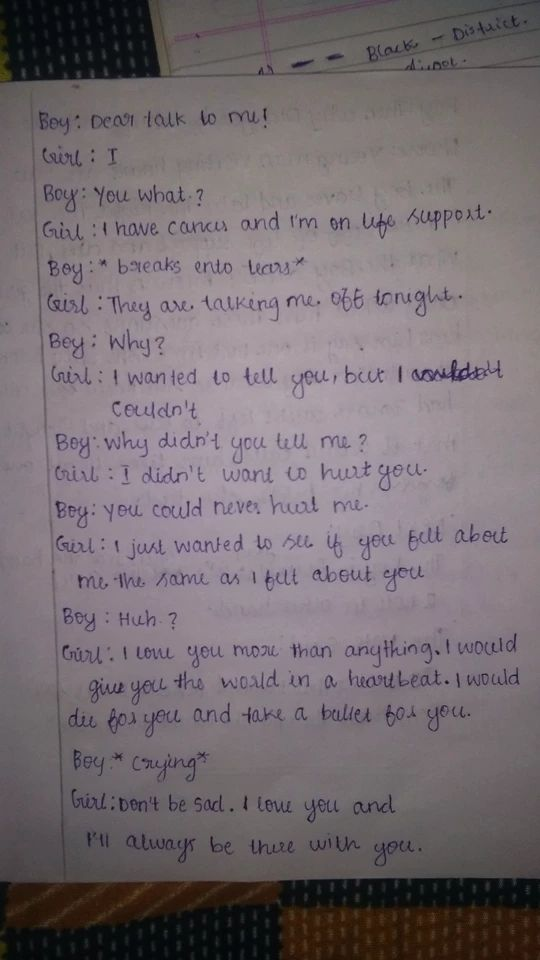 Black - District.
Boy: Dear talk to me!
Girl: I
Boy: You what?
Girl: I have cancer and I'm on life support.
Boy: * breaks ento tears*
Girl: They are talking me off tonight.
Boy: Why?
Girl: I wanted to tell you, but I
couldn't
Boy: Why didn't you tell me?
Girl: I didn't want to hurt you.
Boy: You could never hurt me.
Girl: I just wanted to see if you felt about
me the same as I felt about you
Boy: Huh?
Girl: I love you more than anything. I would
give you the world in a heartbeat. I would
die for you and take a bullet for you.
Boy:* crying*
Girl: Don't be sad. I love you and
I'll always be there with you.